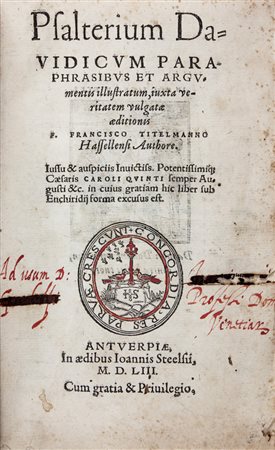 Psalterium Da-
VIDICVM PARA-
PHRASIBVS ET ARGV-
mentis illustratum, iuxta ve-
ritatem vulgatæ
æditionis
F. FRANCISCO TITELMANNO
Hassellensi Authore.
Iussu & auspiciis Inuictiss. Potentissimiq;
Cæsaris CAROLI QVINTI semper Au-
gusti &c. in cuius gratiam hic liber sub
Enchiridij forma excusus est.
CONCORDIA RES PARVÆ CRESCVNT
Ad usum D:
Professi Dom
Venetiarũ
ANTVERPIÆ,
In ædibus Ioannis Steelsii,
M. D. LIII.
Cum gratia & Priuilegio,